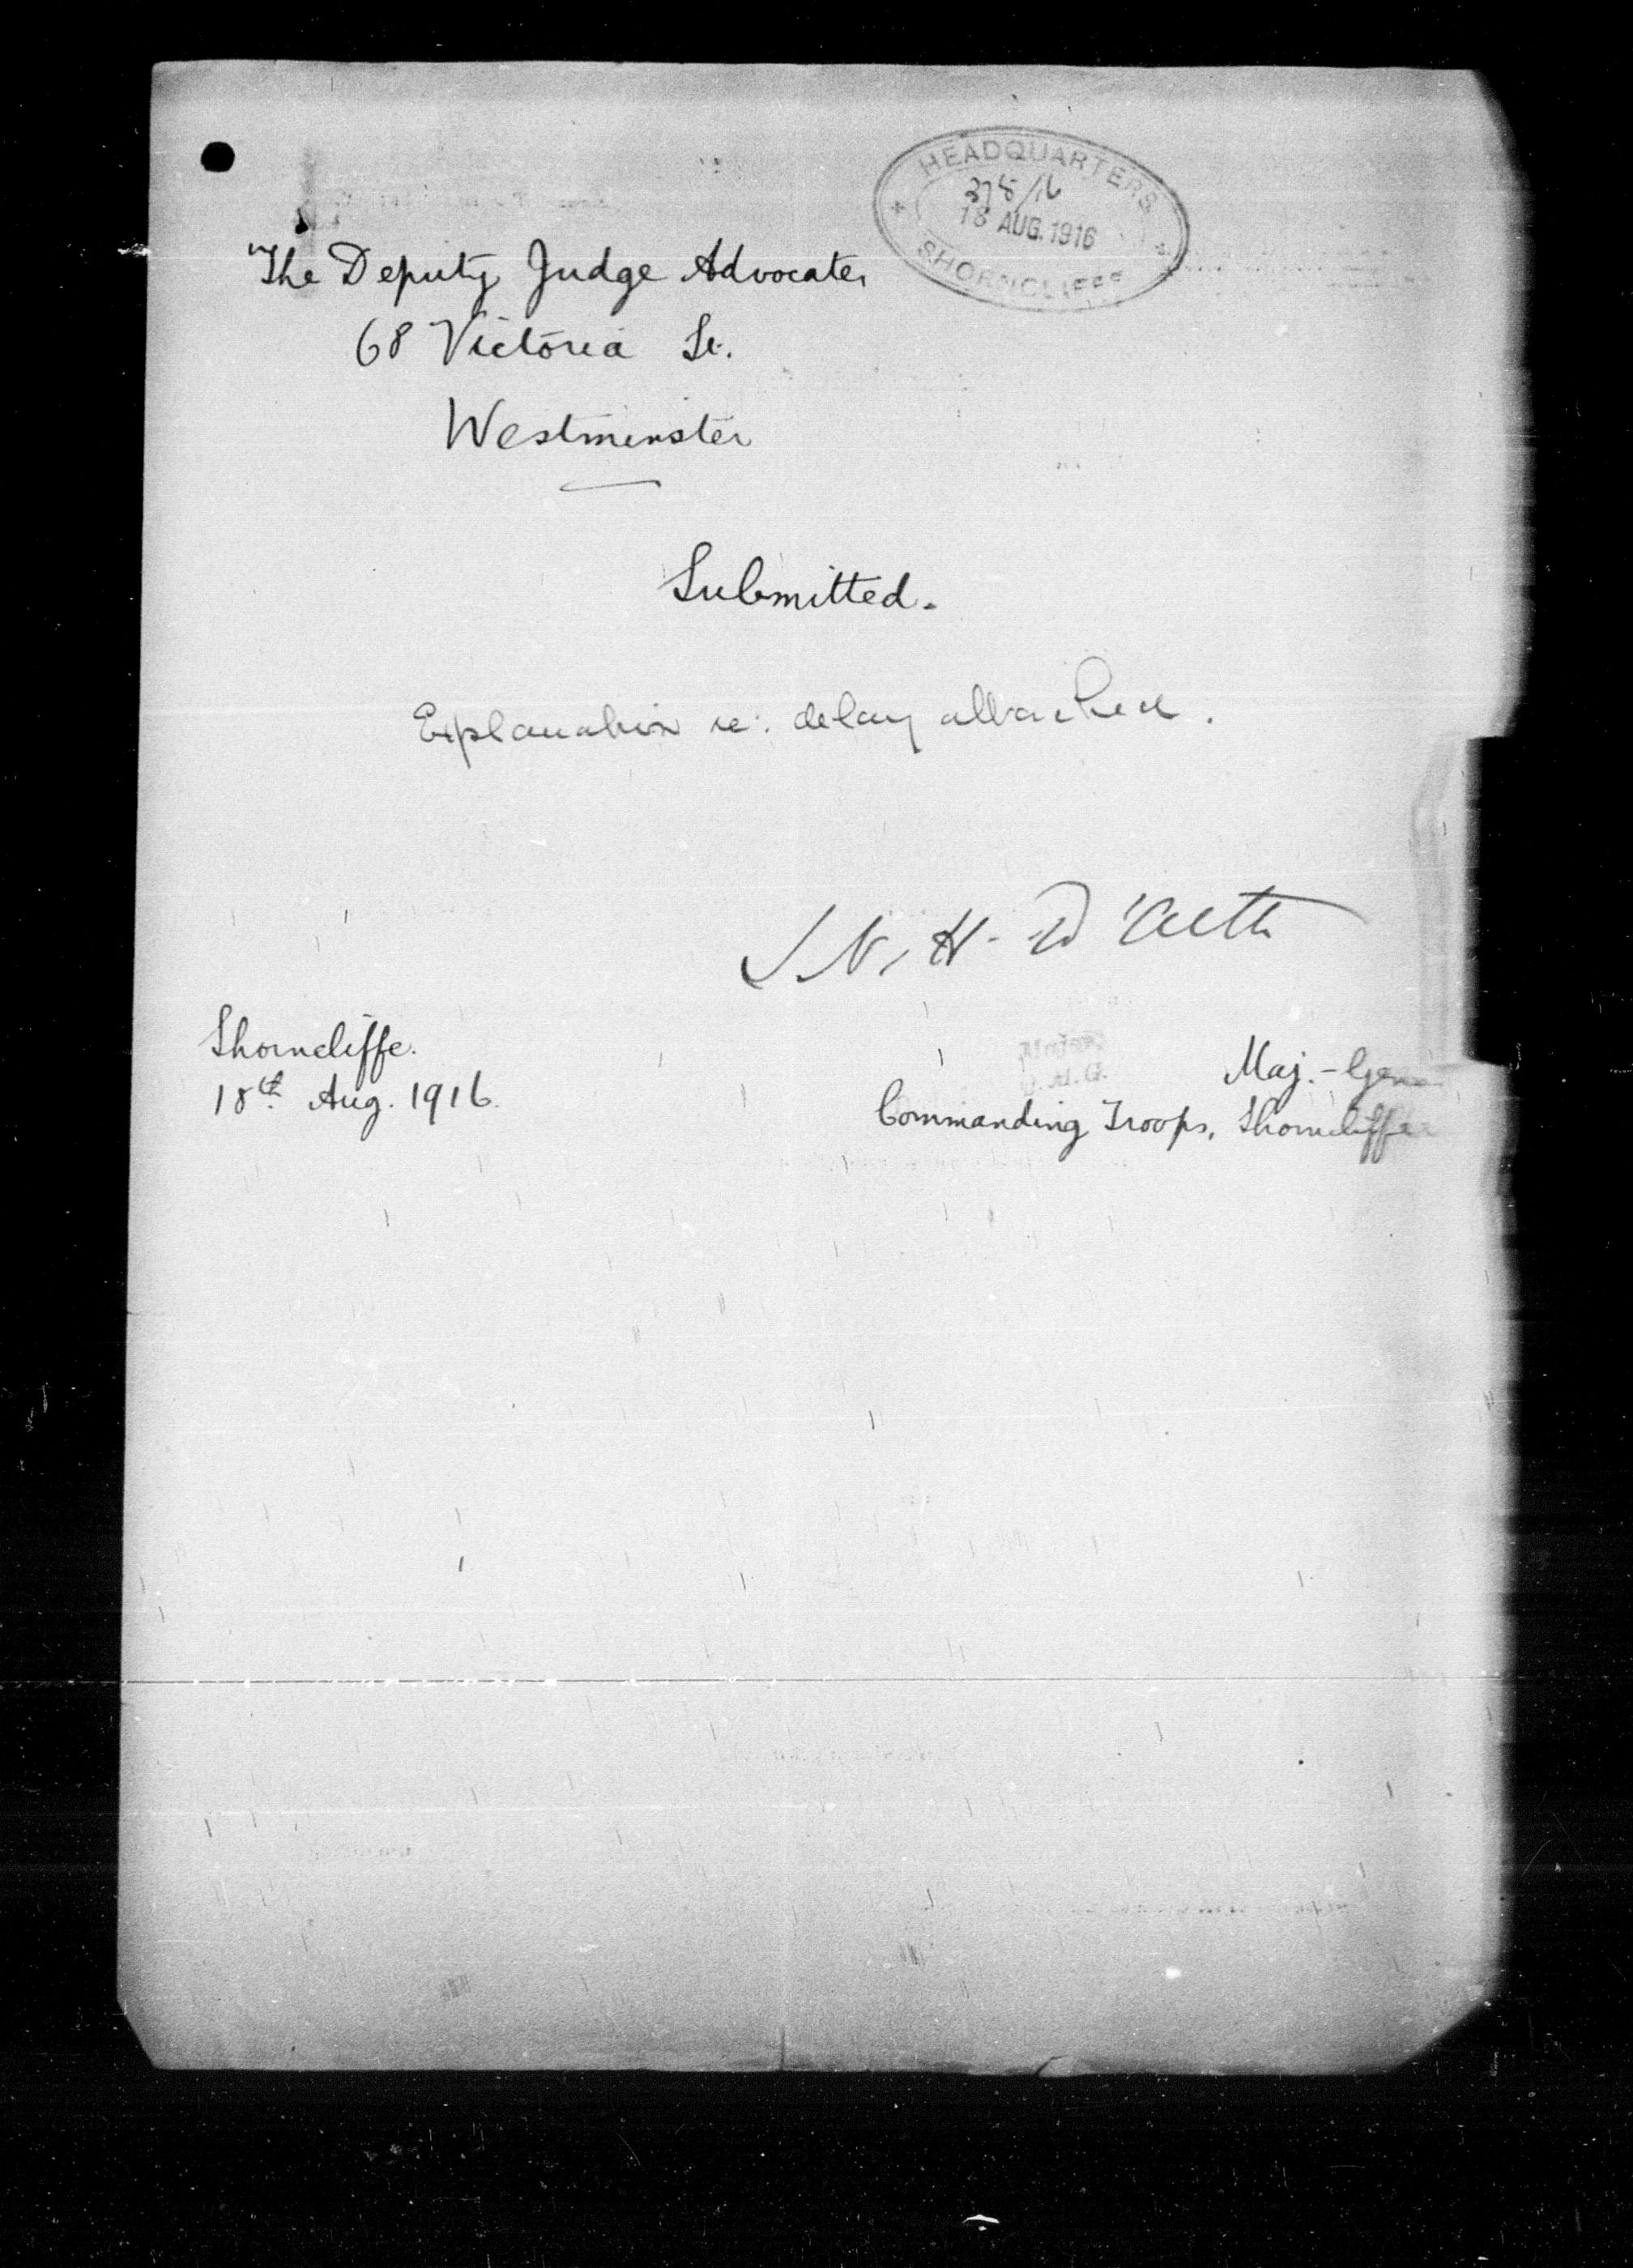 HEADQUARTERS
378/16
18 AUG. 1916
SHORNCLIFFE
The Deputy Judge Advocate,
68 Victoria St.
Westminster
Submitted.
Explanation re: delay attached.
Shorncliffe.
18th Aug. 1916.
Maj.-Gen
Commanding Troops, Shorncliffe